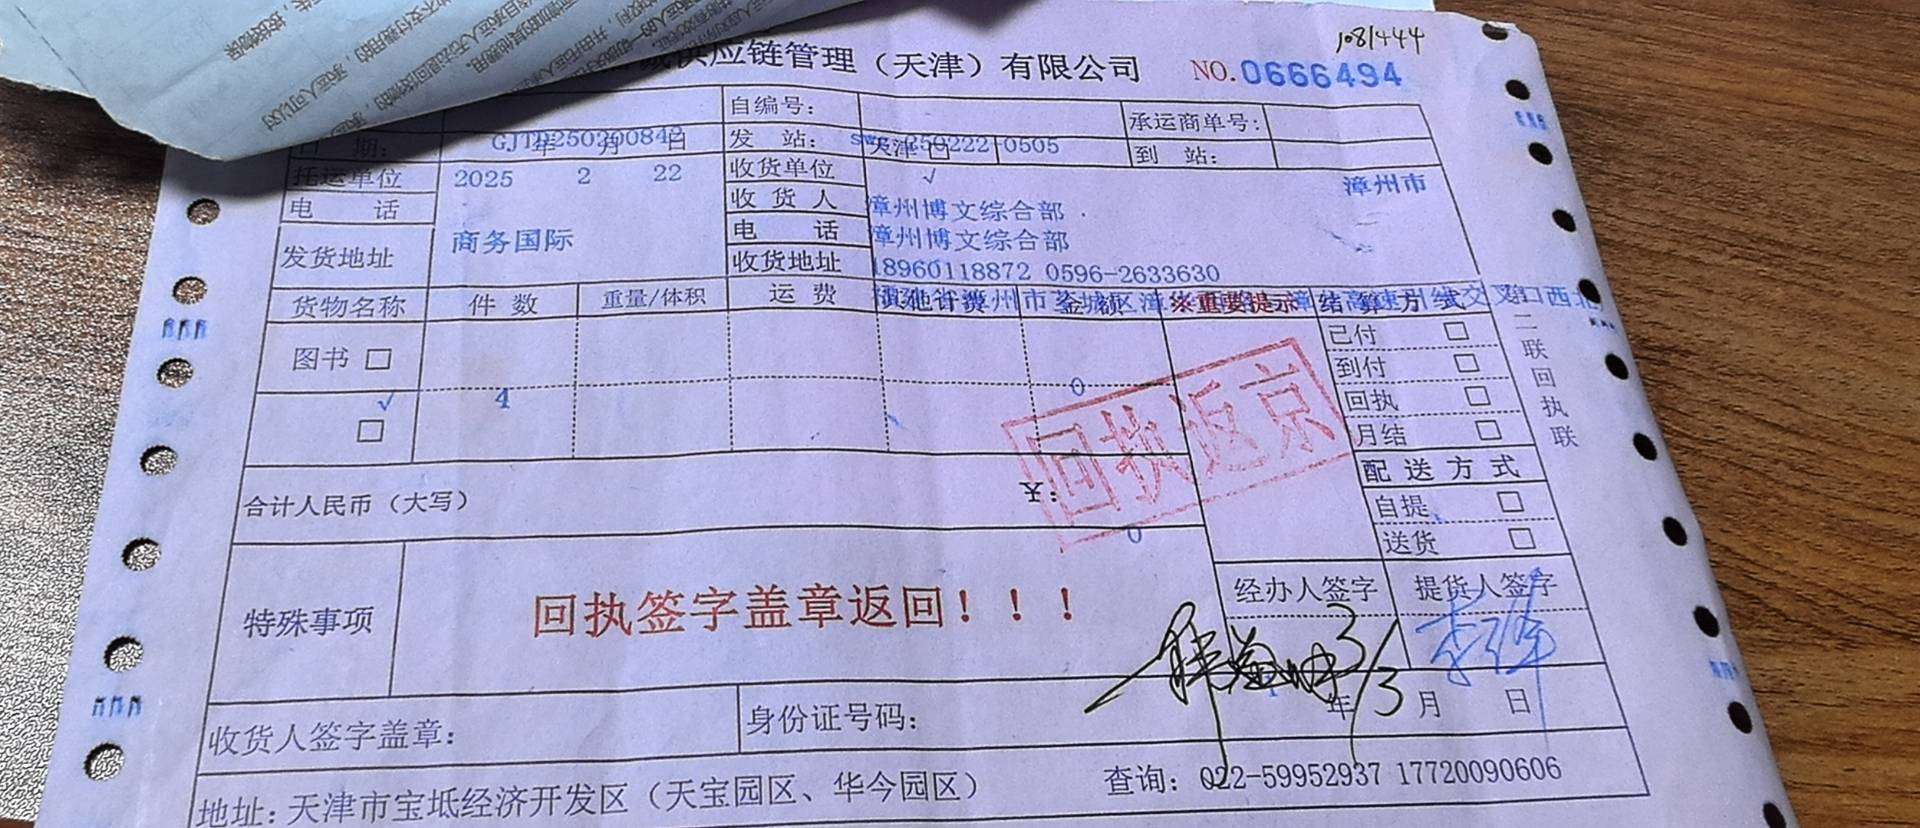 1081444
供应链管理（天津）有限公司 NO.0666494
自编号： 承运商单号：
日 期： 年 月 日 GJTP250200842 发 站： 天津 □ swc 250222 0505 到 站：
托运单位 2025 2 22 收货单位 √ 漳州市
电 话 收 货 人 漳州博文综合部
商务国际 电 话 漳州博文综合部
发货地址 收货地址 18960118872 0596-2633630
货物名称 件 数 重量/体积 运 费 金 额 ※重要提示 结 算 方 式
图书 □ 已付 □
√ 4 0 到付 □
□ 回执 □
月结 □
回执返京
二联 回执联
配 送 方 式
合计人民币（大写） ¥： 自提 □
0 送货 □
特殊事项 回执签字盖章返回！！！ 经办人签字 提货人签字
3/3
年 月 日
收货人签字盖章： 身份证号码：
地址：天津市宝坻经济开发区（天宝园区、华今园区） 查询：022-59952937 17720090606